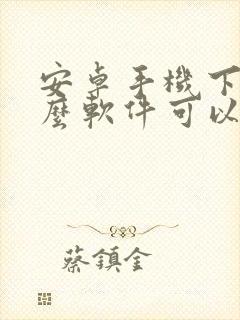 安卓手機下
麼軟件可以
蔡鎮金